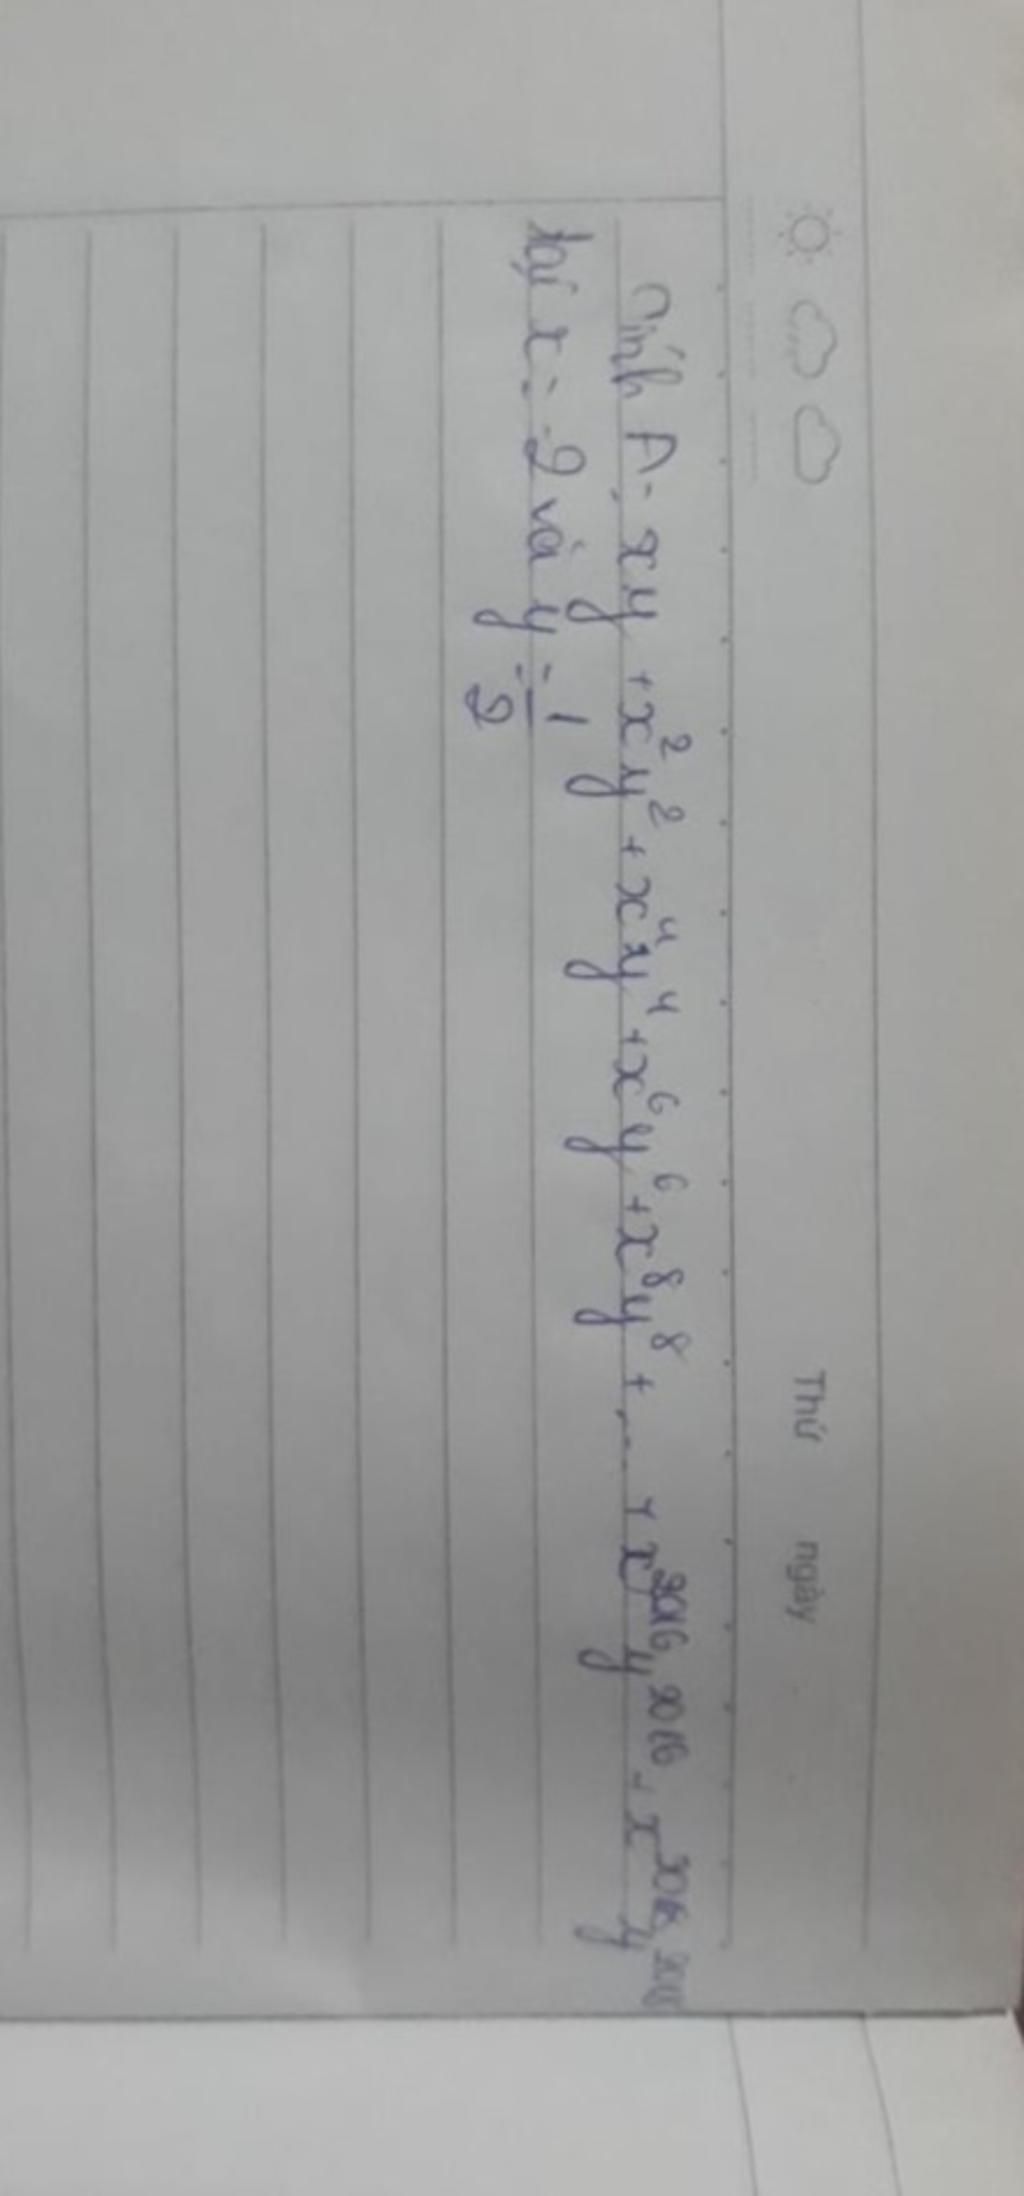 Thứ ngày
Tính A = xy + x²y² + x⁴y⁴ + x⁶y⁶ + x⁸y⁸ + ... + x²⁰¹⁶y²⁰¹⁶ + x²⁰¹⁸y²⁰¹⁸
tại x = -2 và y = 1/2